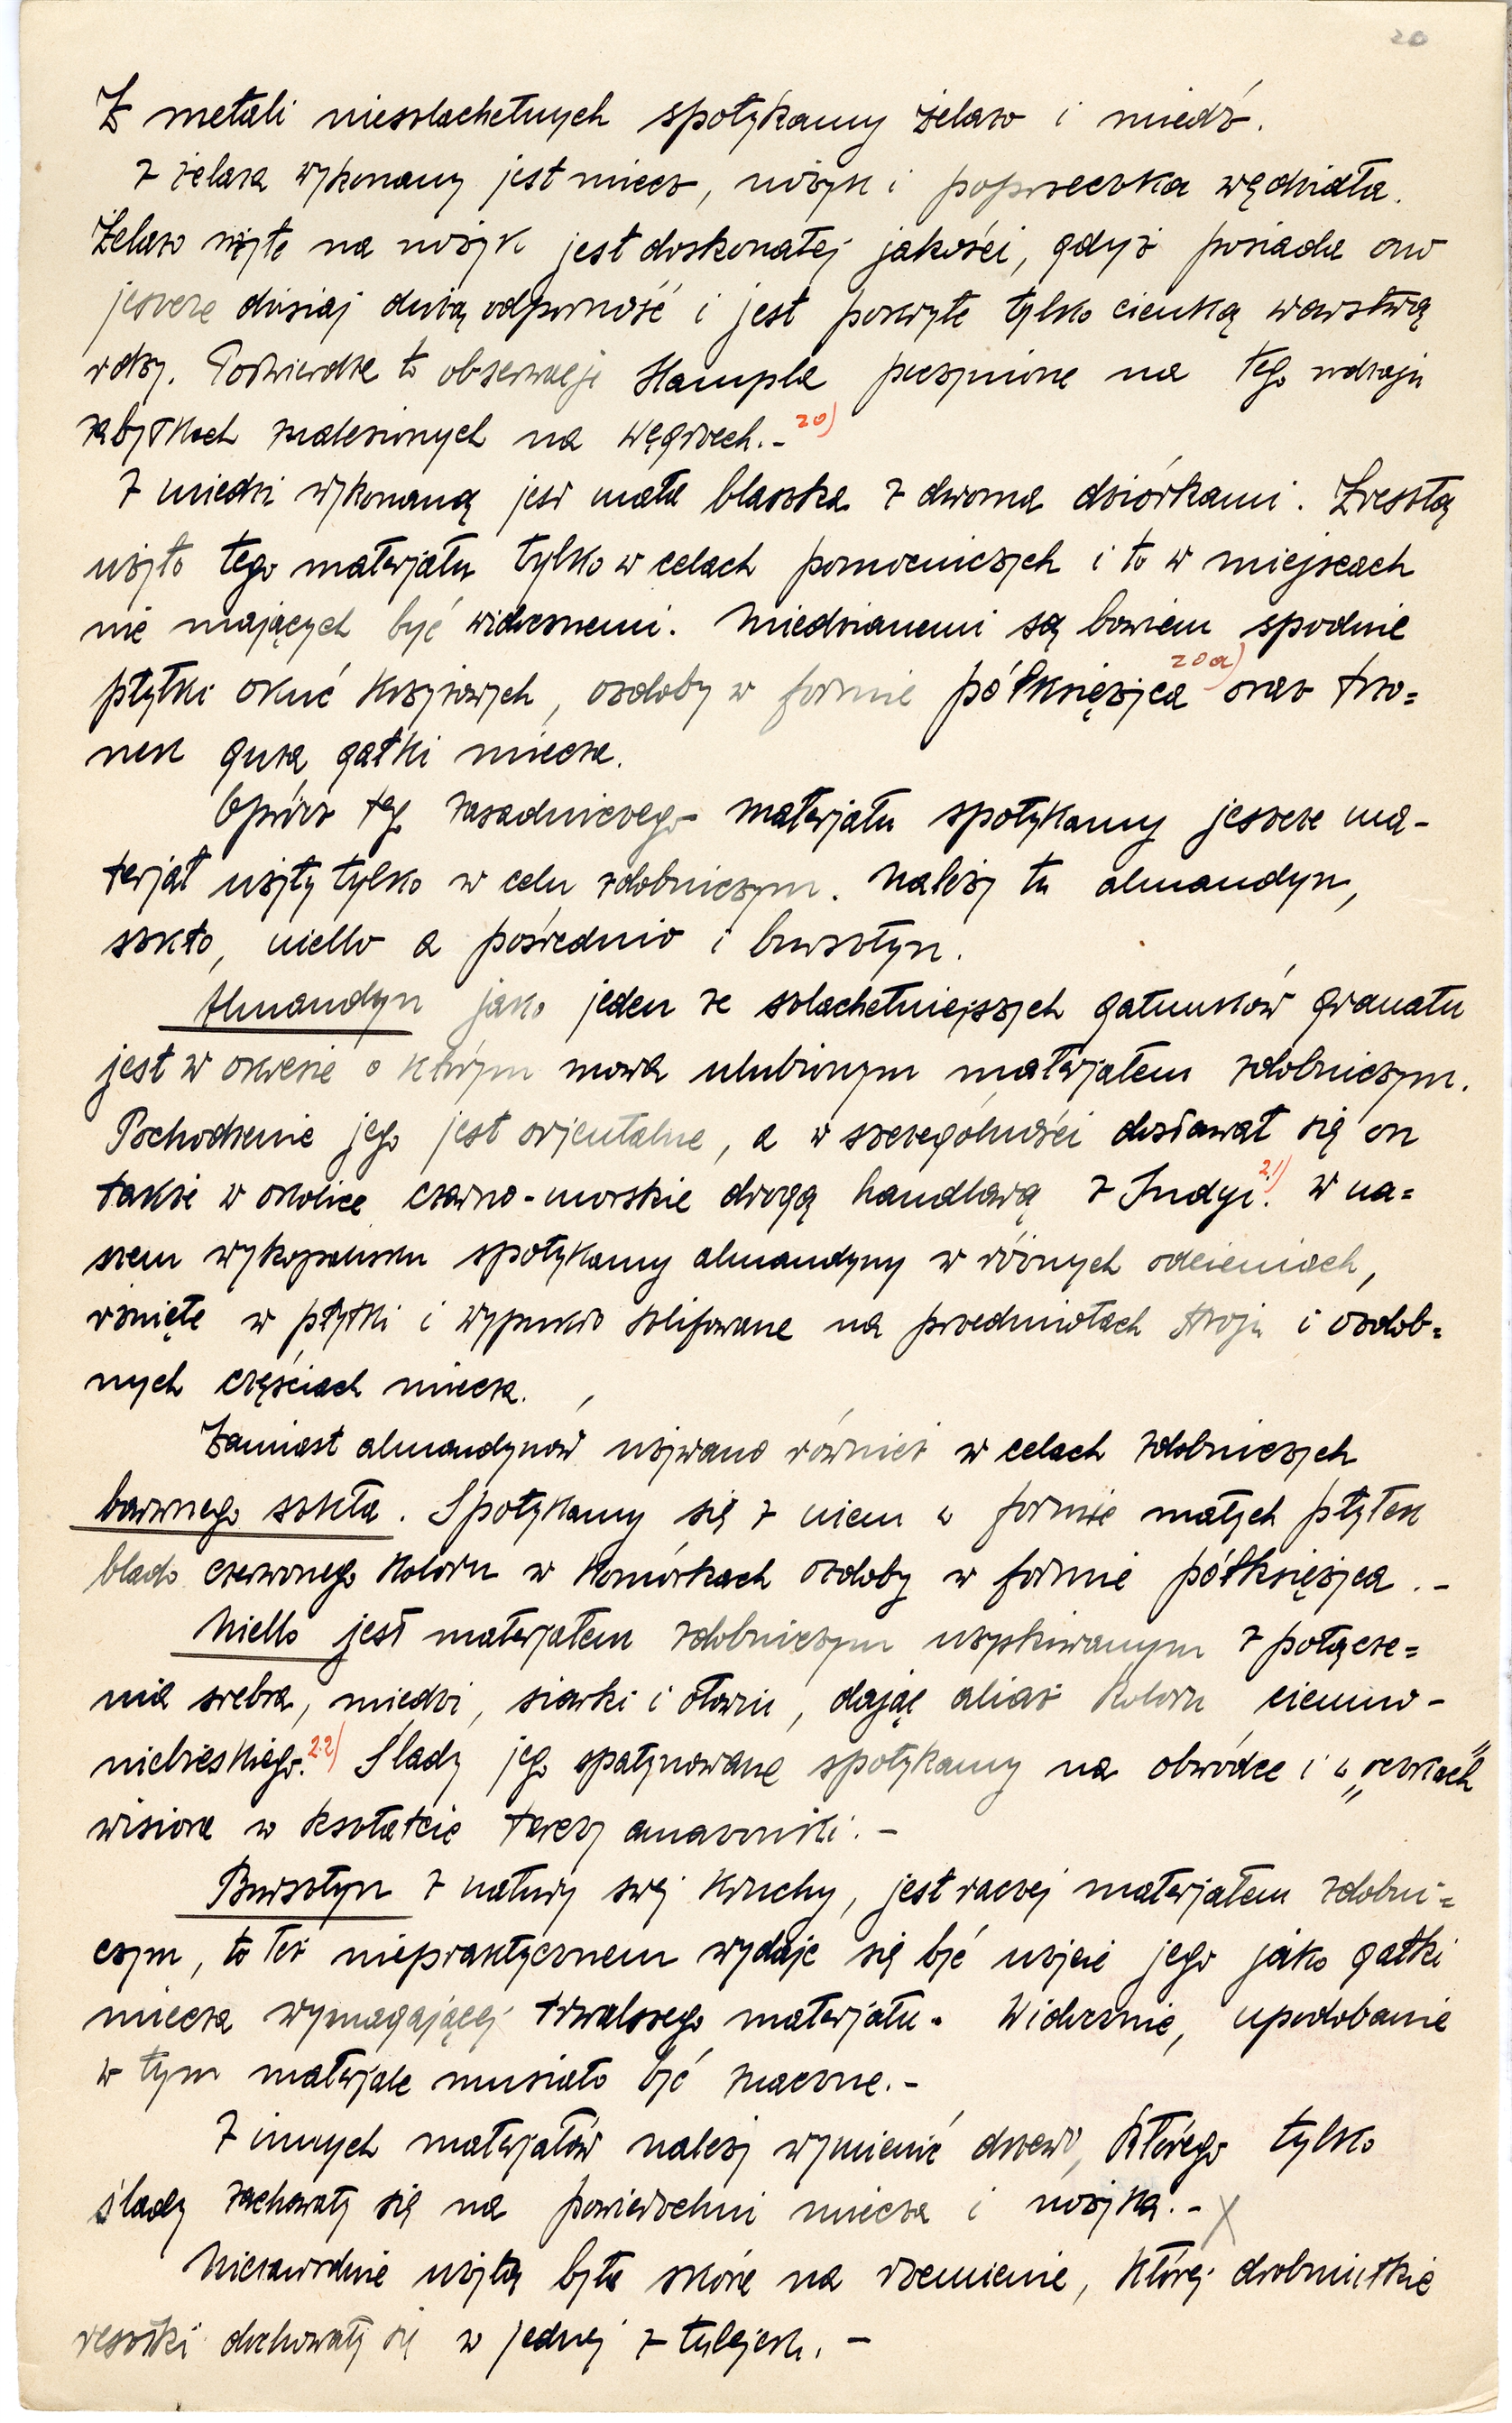 20
Z metali nieszlachetnych spotykamy żelazo i miedź.
Z żelaza wykonany jest miecz, nożyk i poprzeczka wędzidła.
Żelazo użyte na nożyk jest doskonałej jakości, gdyż posiada ono
jeszcze dzisiaj dużą odporność i jest pokryte tylko cienką warstwą
rdzy. Potwierdza to obserwacje Hampla poczynione na tego rodzaju
zabytkach znalezionych na węgrzech.- 20)
Z miedzi wykonaną jest mała blaszka z dwoma dziórkami. Zresztą
użyto tego materjału tylko w celach pomocniczych i to w miejscach
nie mających być widocznemi. Miedzianemi są bowiem spodnie
płytki okuć krzyżowych, ozdoby w formie półksiężyca 20a) oraz trzo=
nek guza gałki miecza.
Oprócz teg zasadniczego materjału spotykamy jeszcze ma-
terjał użyty tylko w celu zdobniczym. Należy tu almandyn,
szkło, niello a pośrednio i bursztyn.
Almandyn jako jeden ze szlachetniejszych gatunków granatu
jest w okresie o którym mowa ulubionym materjałem zdobniczym.
Pochodzenie jego jest orjentalne, a w szczególności dostawał się on
także w okolice czarno-morskie drogą handlową z Indyi. 21) W na=
szem wykopalisku spotykamy almandyny w różnych odcieniach,
rżnięte w płytki i wypukło szlifowane na przedmiotach stroju i ozdob=
nych częściach miecza.
Zamiast almandynów używano również w celach zdobniczych
barwnego szkła. Spotykamy się z niem w formie małych płytek
blado czerwonego koloru w komórkach ozdoby w formie półksiężyca.-
Niello jest materjałem zdobniczym uzyskiwanym z połącze=
nia srebra, miedzi, siarki i ołowiu, dając aliaż koloru ciemno-
niebieskiego. 22) Ślady jego spatynowane spotykamy na obwódce i w „oczkach"
wisiora w kształcie tarczy amazonki.-
Bursztyn z natury swej kruchy, jest raczej materjałem zdobni=
czym, to też niepraktycznem wydaje się być użycie jego jako gałki
miecza wymagającej trwalszego materjału. Widocznie, upodobanie
w tym materjale musiało być znaczne.-
Z innych materjałów należy wymienić drzewo, którego tylko
ślady zachowały się na powierzchni miecza i nożyka.- X
Niezawodnie użytą była skóra na rzemienie, której drobniutkie
resztki dochowały się w jednej z tulejek.-